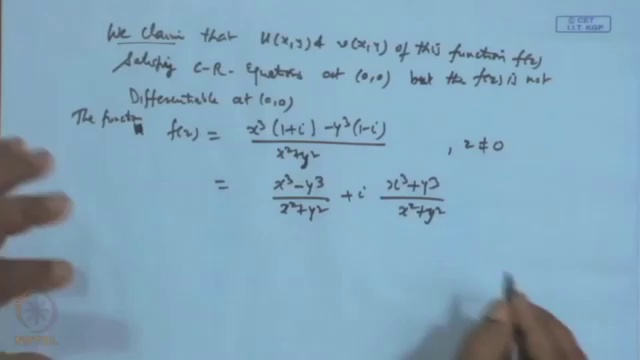 © CET
I.I.T. KGP
We claim that u(x,y) & v(x,y) of this function f(z)
Satisfies C-R- Equations at (0,0) but the f(z) is not
Differentiable at (0,0)
The function f(z) = x³(1+i) - y³(1-i) / x²+y² , z ≠ 0
= x³-y³ / x²+y² + i x³+y³ / x²+y²
NPTEL